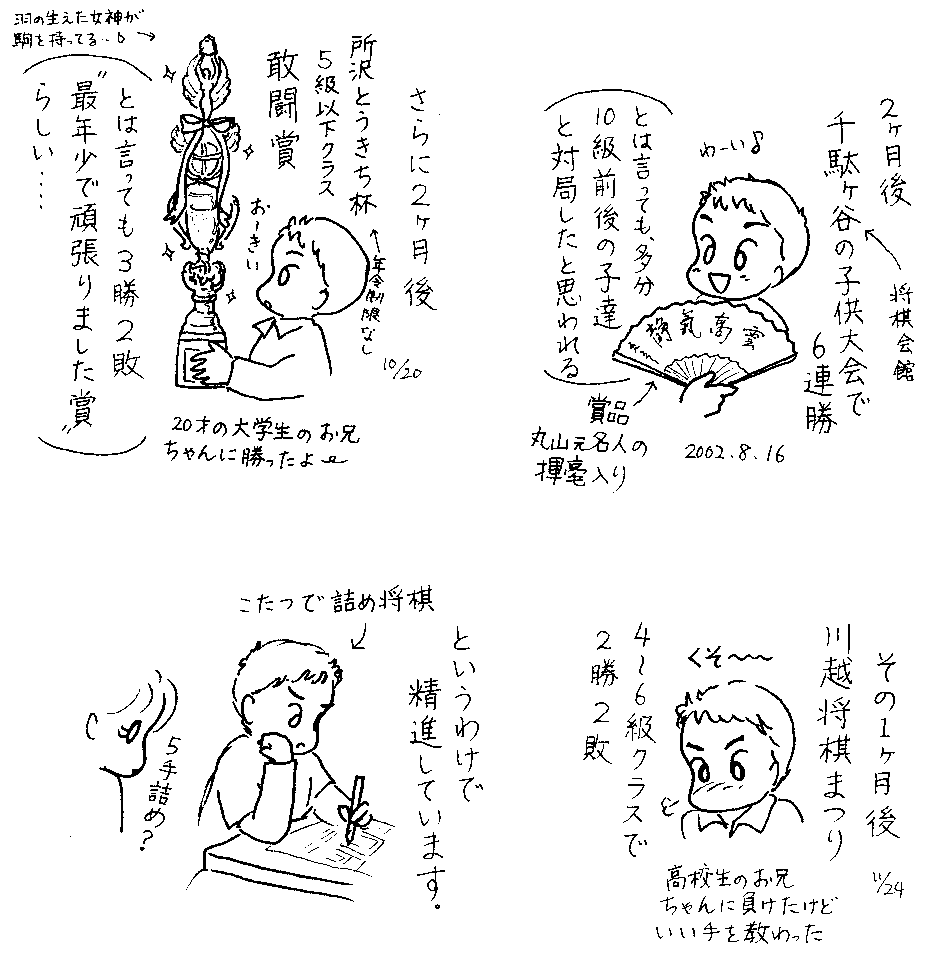 2ヶ月後
千駄ヶ谷の子供大会で
6連勝
将棋会館
わーい♪
とは言っても、多分
10級前後の子達
と対局したと思われる
賞品
丸山元名人の
揮毫入り
2002.8.16
さらに2ヶ月後
所沢とうきち杯
5級以下クラス
敢闘賞
年令制限なし
10/20
おーきい
羽の生えた女神が
駒を持ってる
とは言っても3勝2敗
"最年少で頑張りました賞"
らしい....
20才の大学生のお兄
ちゃんに勝ったよ
その1ヶ月後
川越将棋まつり
4〜6級クラスで
2勝2敗
くそ〜〜
11/24
高校生のお兄
ちゃんに負けたけど
いい手を教わった
というわけで
精進しています.
こたつで詰め将棋
5手詰め?